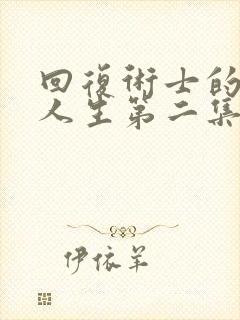 回復術士的
人生第二集
伊依羊